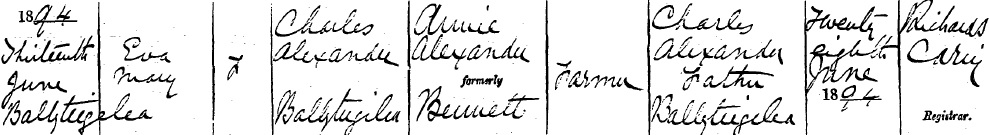 1894 Charles Annie Charles Twenty Richard S
Thirteenth Eva Alexander Alexander Alexander eighth Carey
June Mary F formerly Farmer Father June
1894
Ballyteigelea Ballyteigelea Bennett Ballyteigelea Registrar.